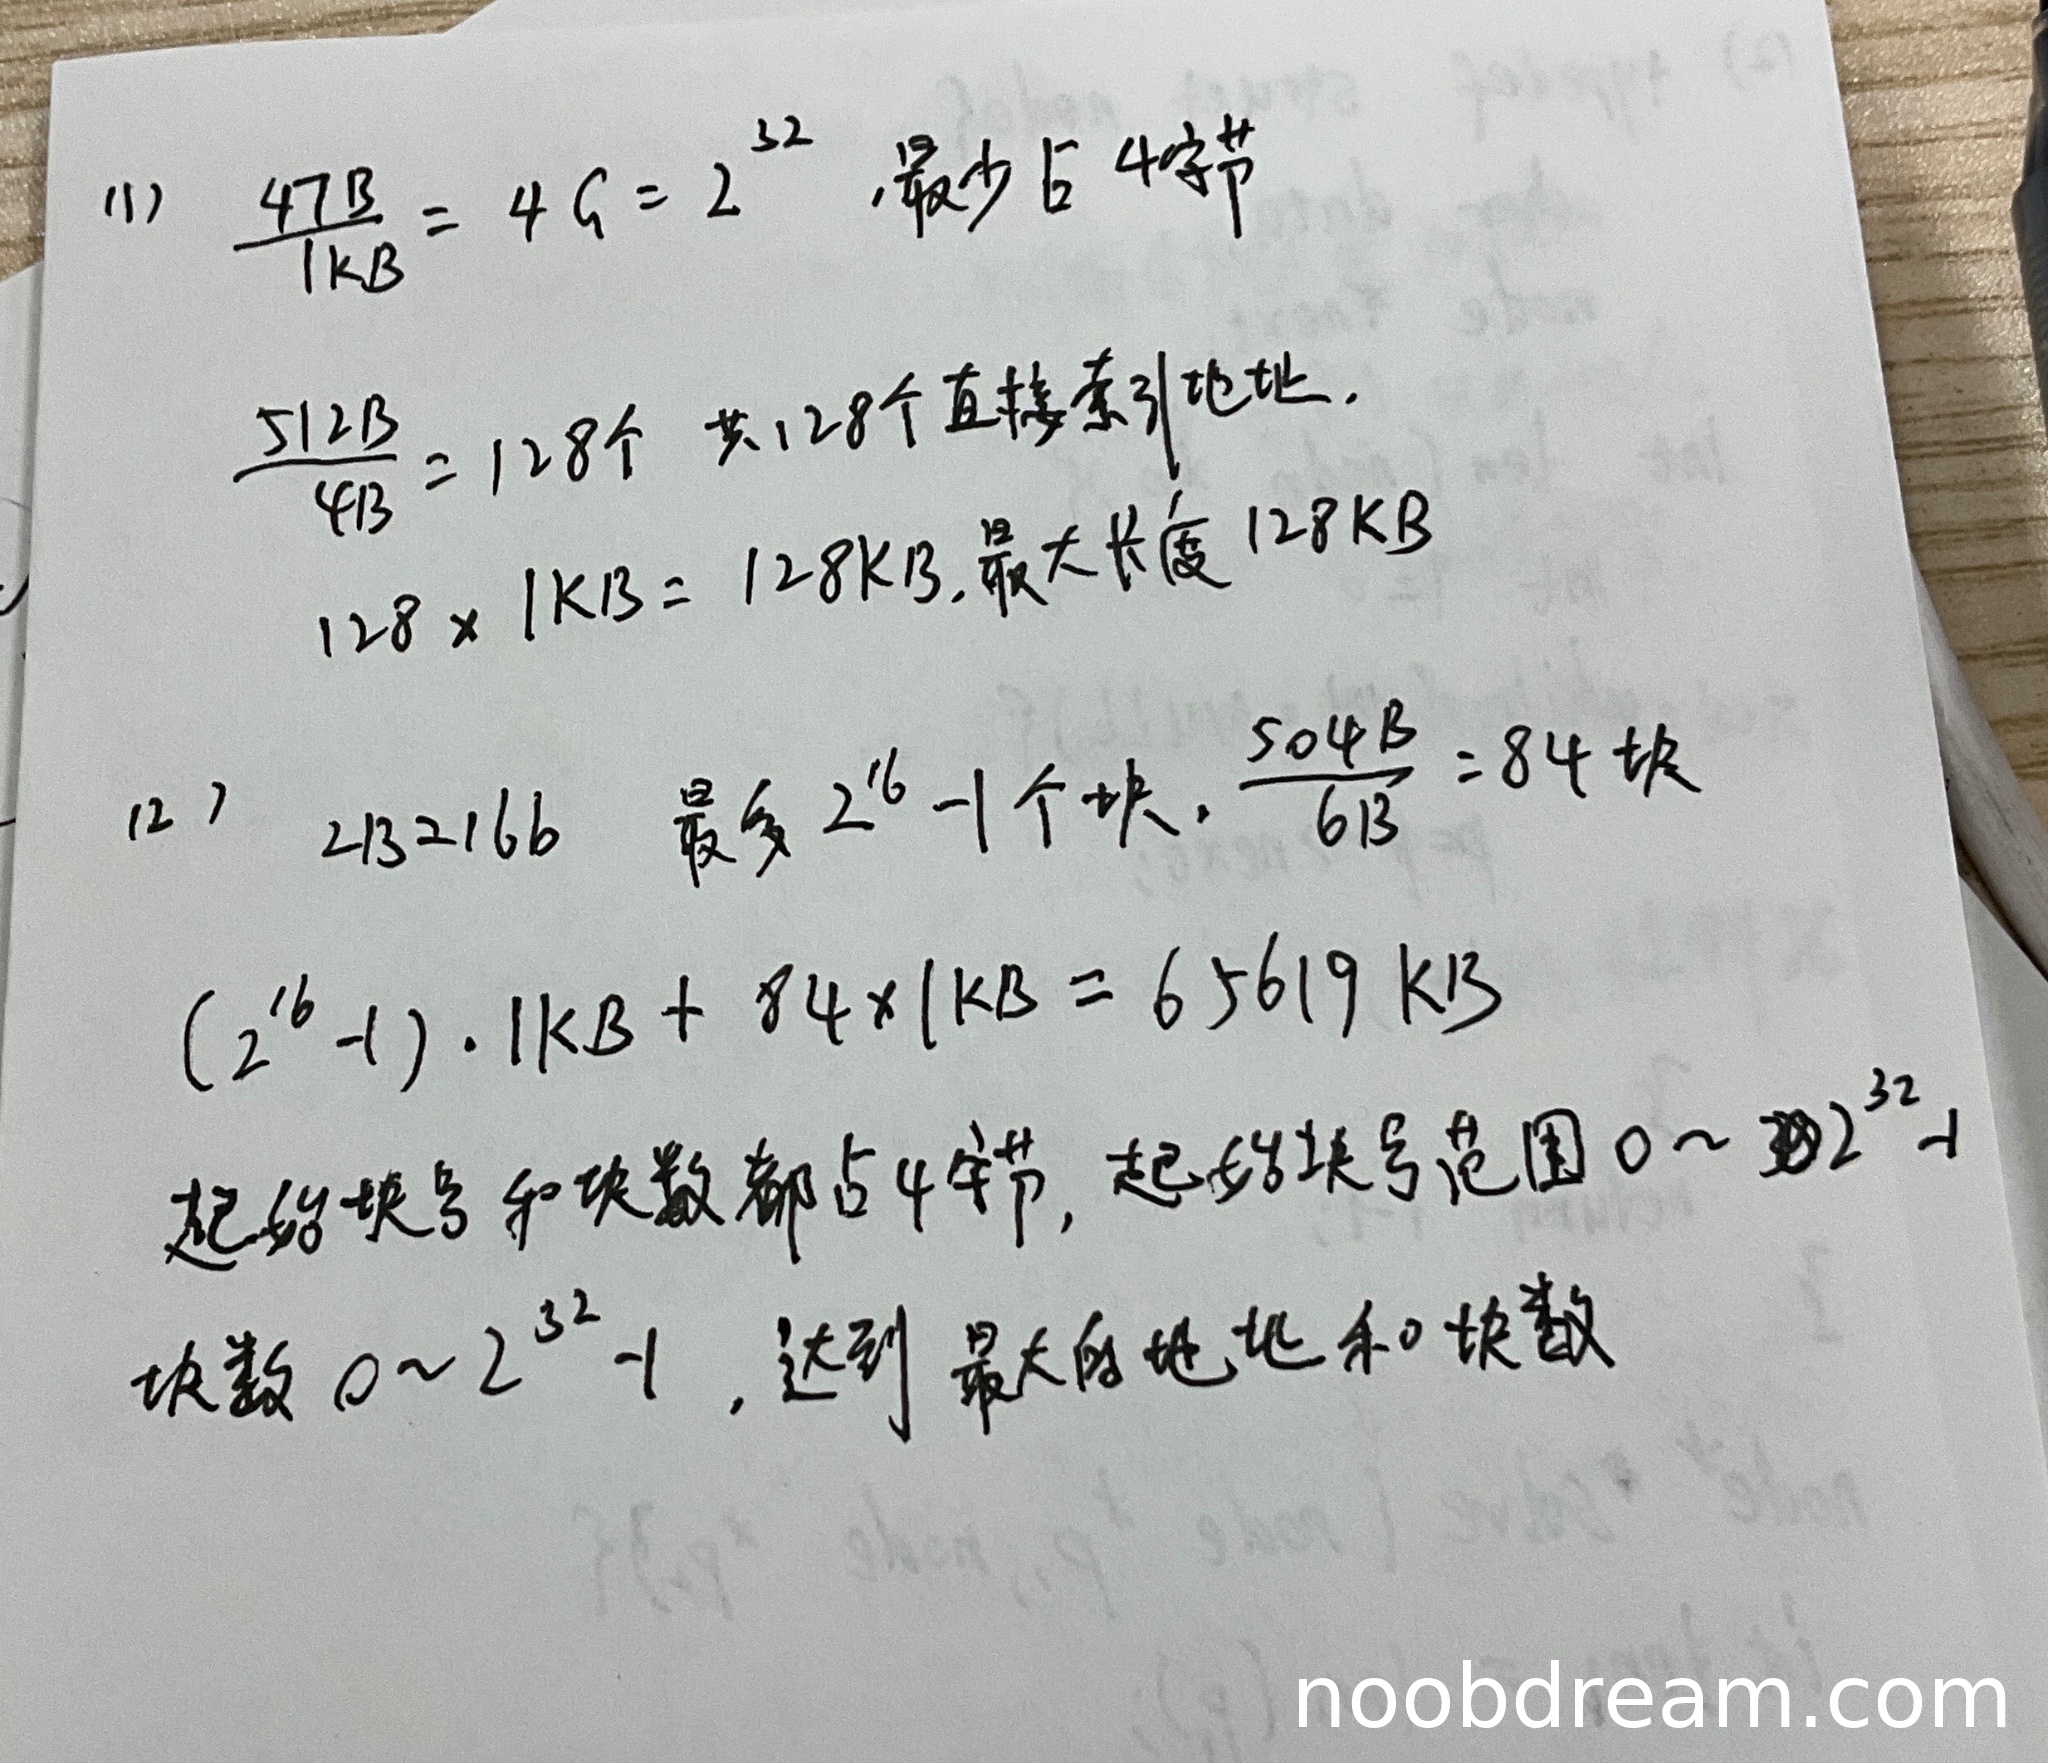 (1) 4TB/1KB = 4G = 2^32 ,最少占4字节
512B/4B = 128个 共128个直接索引地址.
128 × 1KB = 128KB,最大长度128KB
(2) 2B=16b 最多2^16-1个块. 504B/6B = 84块
(2^16-1)·1KB + 84×1KB = 65619KB
起始块号和块数都占4字节,起始块号范围0~2^32-1
块数0~2^32-1,达到最大的地址和块数
noobdream.com